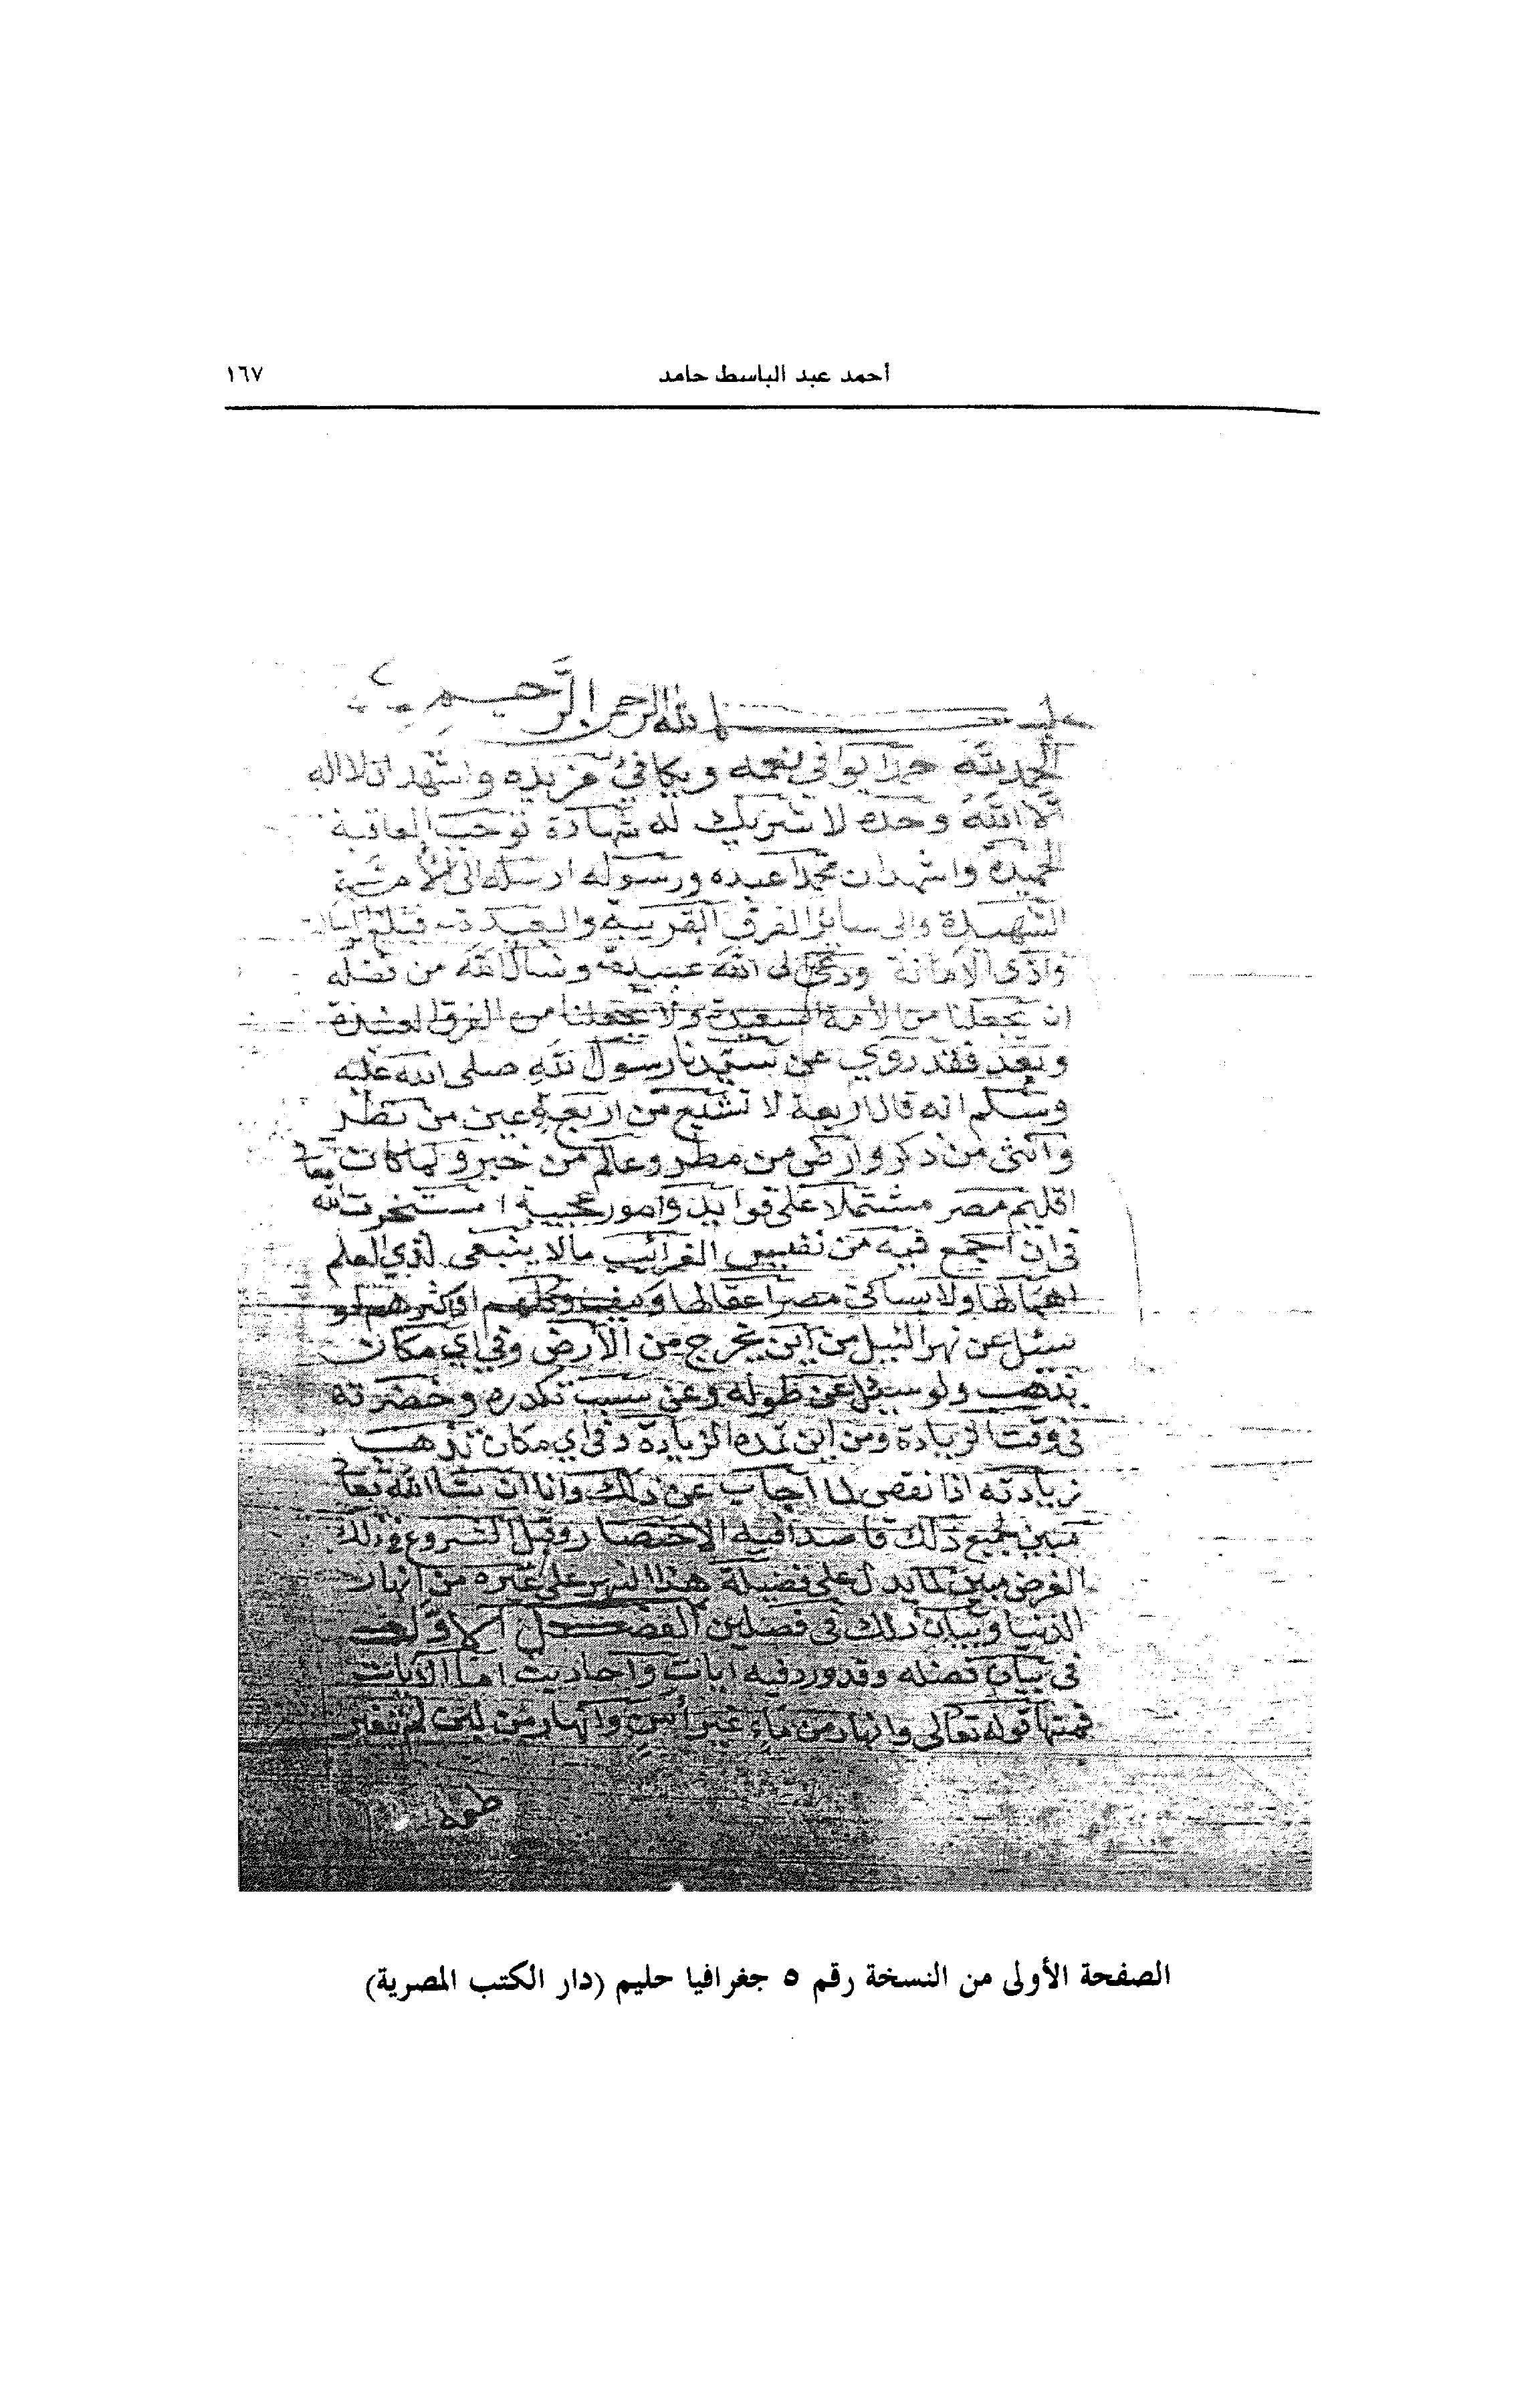 أحمد عبد الباسط حامد
١٦٧
بسم الله الرحمن الرحيم
الحمد لله حمدا يوافي نعمه ويكافئ مزيده واشهد ان لا اله
الا الله وحده لا شريك له شهادة توجب العاقبة
الحميدة واشهد ان محمدا عبده ورسوله ارسله الى الأمة
الشهيدة والى سائر الفرق القريبة والبعيدة فبلغ الرسالة
وادى الامانة ودعى الى الله عبيده ونسأل الله من فضله
ان يجعلنا من الأمة السعيدة ولا يجعلنا من الفرق العنيدة
وبعد فقد روي عن سيدنا رسول الله صلى الله عليه
وسلم انه قال اربعة لا تشبع من اربعة عين من نظر
وانثى من ذكر وارض من مطر وعالم من خبر ولما كانت
اقليم مصر مشتملا على فوايد وامور عجيبة استخرت الله
في ان اجمع فيه من نفيس الغرائب ما لا ينبغي لذي العلم
اهمالها ولا يساكن مصر اغفالها وكيف وكلهم اوكثرهم لو
سيئل عن نهر النيل من اين يخرج من الأرض وفي اي مكان
يذهب ولو سيئل عن طوله وعن سبب تكدره وخضرته
في وقت الزيادة ومن اين تمده الزيادة وفي اي مكان تذهب
زيادته اذا نقص لما اجاب عن ذلك وانا ان شا الله تعا
مبين لجميع ذلك قاصدا فيه الاختصار وقبل الشروع في ذلك
الغرض مبين لما يدل على فضيلة هذا النهر على غيره من انهار
الدنيا وبيان ذلك في فصلين الفصل الاول
في بيان فضله وقد ورد فيه ايات واحاديث اما الايات
فمنها قوله تعالى وانهار من ماء غير أسن وانهار من لبن لم يتغير
طعمه
الصفحة الأولى من النسخة رقم ٥ جغرافيا حليم (دار الكتب المصرية)